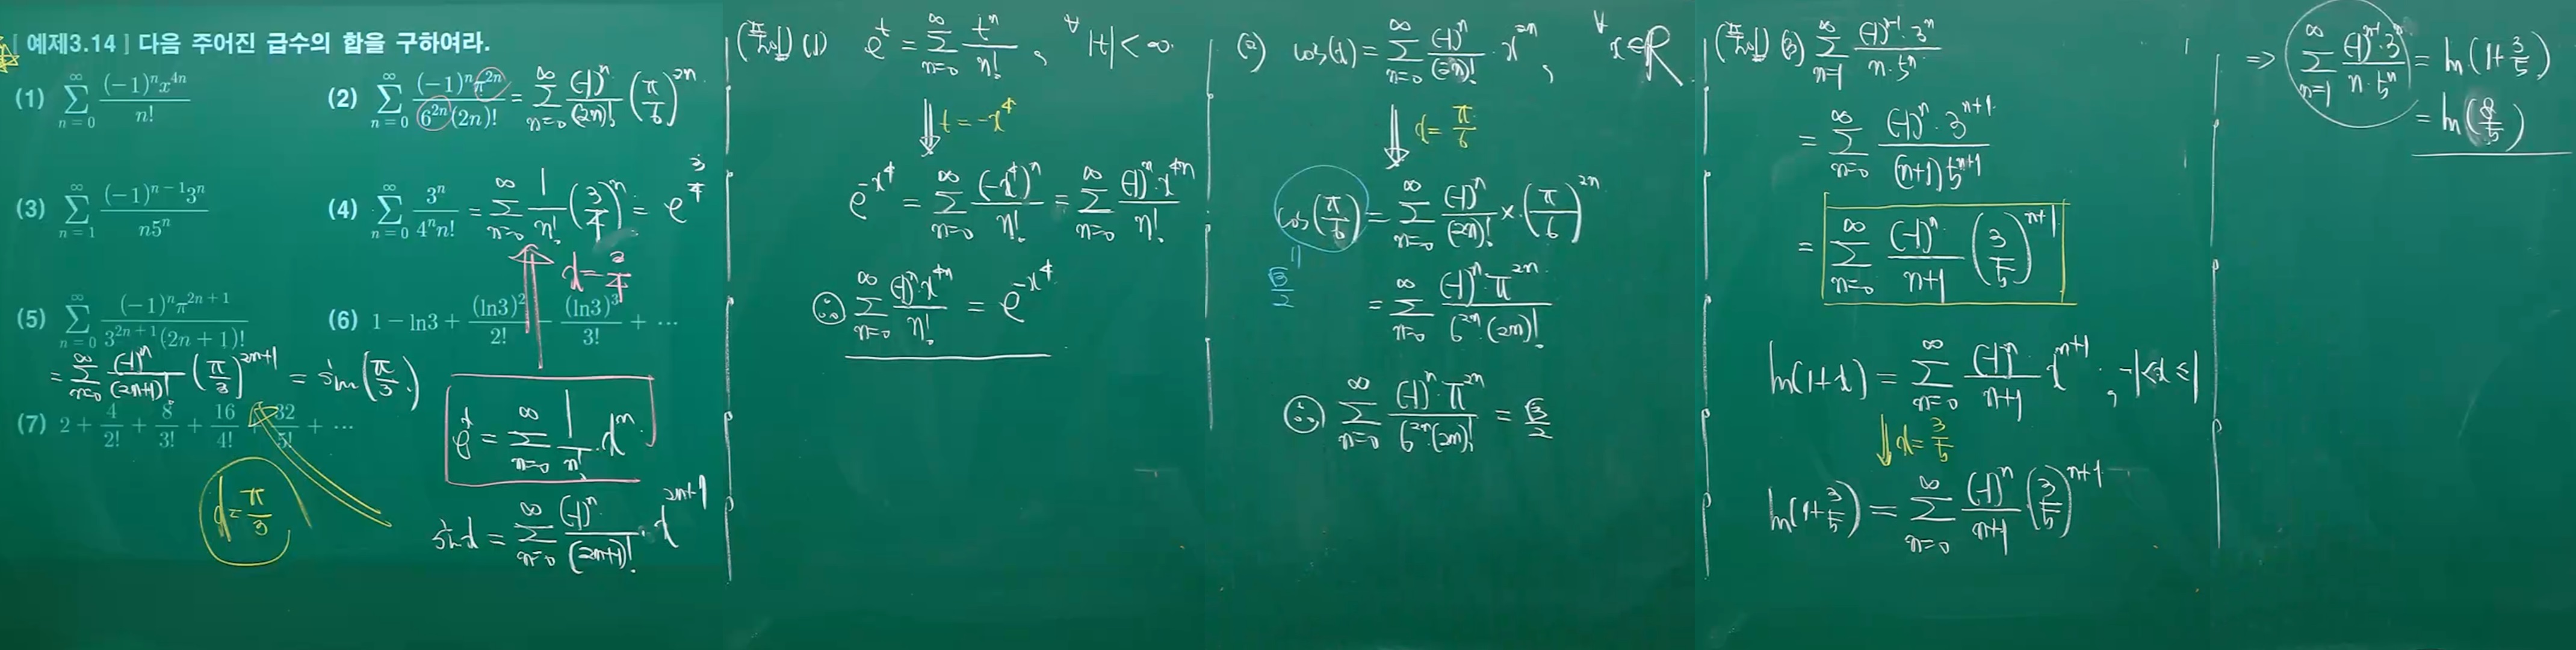 [ 예제3.14 ] 다음 주어진 급수의 합을 구하여라.
(1) \sum_{n=0}^{\infty} \frac{(-1)^n x^{4n}}{n!}
(2) \sum_{n=0}^{\infty} \frac{(-1)^n \pi^{2n}}{6^{2n}(2n)!} = \sum_{n=0}^{\infty} \frac{(-1)^n}{(2n)!} \left(\frac{\pi}{6}\right)^{2n}
(3) \sum_{n=1}^{\infty} \frac{(-1)^{n-1} 3^n}{n 5^n}
(4) \sum_{n=0}^{\infty} \frac{3^n}{4^n n!} = \sum_{n=0}^{\infty} \frac{1}{n!} \left(\frac{3}{4}\right)^n = e^{\frac{3}{4}}
x = \frac{3}{4}
(5) \sum_{n=0}^{\infty} \frac{(-1)^n \pi^{2n+1}}{3^{2n+1}(2n+1)!}
= \sum_{n=0}^{\infty} \frac{(-1)^n}{(2n+1)!} \left(\frac{\pi}{3}\right)^{2n+1} = \sin\left(\frac{\pi}{3}\right)
(6) 1 - \ln 3 + \frac{(\ln 3)^2}{2!} - \frac{(\ln 3)^3}{3!} + \cdots
(7) 2 + \frac{4}{2!} + \frac{8}{3!} + \frac{16}{4!} + \frac{32}{5!} + \cdots
x = \frac{\pi}{3}
e^x = \sum_{n=0}^{\infty} \frac{1}{n!} x^n
\sin x = \sum_{n=0}^{\infty} \frac{(-1)^n}{(2n+1)!} \cdot x^{2n+1}
(풀이) (1) e^t = \sum_{n=0}^{\infty} \frac{t^n}{n!}, \forall |t| < \infty
⇓ t = -x^4
e^{-x^4} = \sum_{n=0}^{\infty} \frac{(-x^4)^n}{n!} = \sum_{n=0}^{\infty} \frac{(-1)^n \cdot x^{4n}}{n!}
∴ \sum_{n=0}^{\infty} \frac{(-1)^n x^{4n}}{n!} = e^{-x^4}
(2) \cos(x) = \sum_{n=0}^{\infty} \frac{(-1)^n}{(2n)!} \cdot x^{2n}, \forall x \in R
⇓ x = \frac{\pi}{6}
\cos\left(\frac{\pi}{6}\right) = \sum_{n=0}^{\infty} \frac{(-1)^n}{(2n)!} \times \left(\frac{\pi}{6}\right)^{2n}
\frac{\sqrt{3}}{2}
= \sum_{n=0}^{\infty} \frac{(-1)^n \cdot \pi^{2n}}{6^{2n} \cdot (2n)!}
∴ \sum_{n=0}^{\infty} \frac{(-1)^n \cdot \pi^{2n}}{6^{2n}(2n)!} = \frac{\sqrt{3}}{2}
(풀이) (3) \sum_{n=1}^{\infty} \frac{(-1)^{n-1} \cdot 3^n}{n \cdot 5^n}
= \sum_{n=0}^{\infty} \frac{(-1)^n \cdot 3^{n+1}}{(n+1) 5^{n+1}}
= \sum_{n=0}^{\infty} \frac{(-1)^n}{n+1} \left(\frac{3}{5}\right)^{n+1}
\ln(1+x) = \sum_{n=0}^{\infty} \frac{(-1)^n}{n+1} x^{n+1}, -1 < x ≤ 1
⇓ x = \frac{3}{5}
\ln\left(1+\frac{3}{5}\right) = \sum_{n=0}^{\infty} \frac{(-1)^n}{n+1} \left(\frac{3}{5}\right)^{n+1}
⇒ \sum_{n=1}^{\infty} \frac{(-1)^{n-1} 3^n}{n \cdot 5^n} = \ln\left(1+\frac{3}{5}\right)
= \ln\left(\frac{8}{5}\right)